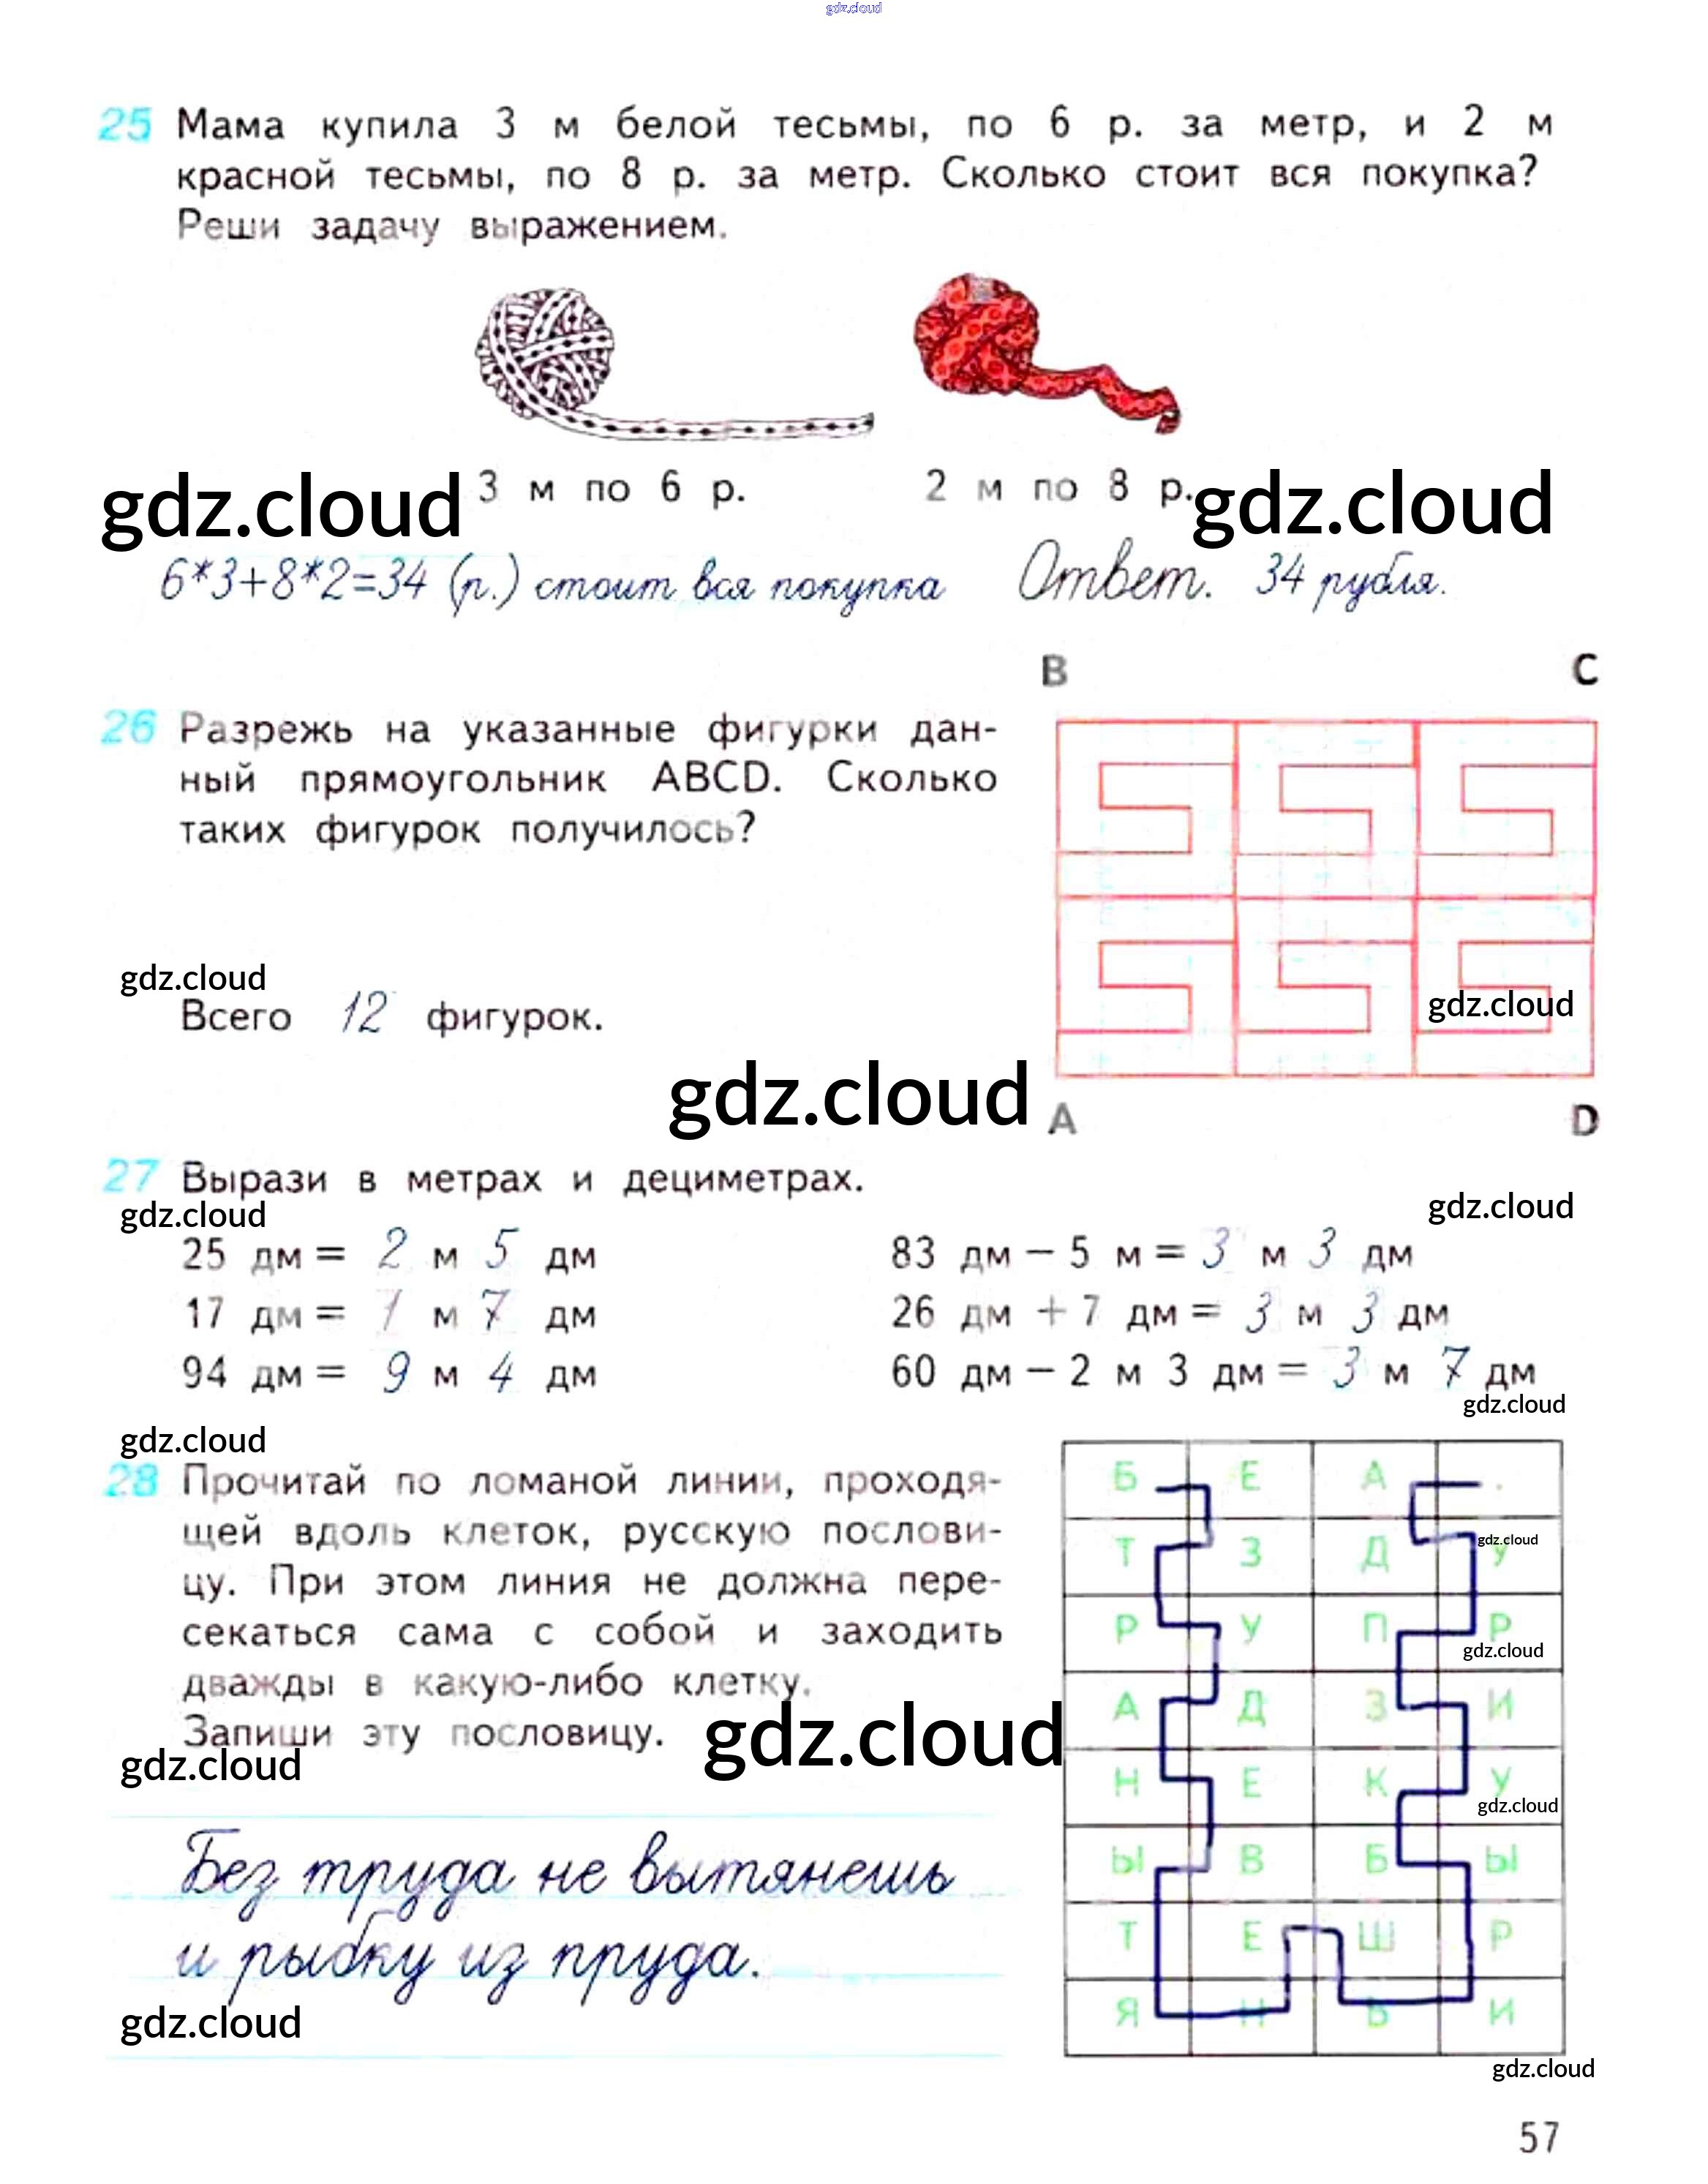 gdz.cloud
25 Мама купила 3 м белой тесьмы, по 6 р. за метр, и 2 м
красной тесьмы, по 8 р. за метр. Сколько стоит вся покупка?
Реши задачу выражением.
gdz.cloud 3 м по 6 р. 2 м по 8 р. gdz.cloud
6*3+8*2=34 (р.) стоит вся покупка Ответ. 34 рубля.
B C
26 Разрежь на указанные фигурки дан-
ный прямоугольник ABCD. Сколько
таких фигурок получилось?
gdz.cloud
gdz.cloud
Всего 12 фигурок.
gdz.cloud
A D
27 Вырази в метрах и дециметрах.
gdz.cloud gdz.cloud
25 дм = 2 м 5 дм 83 дм − 5 м = 3 м 3 дм
17 дм = 1 м 7 дм 26 дм + 7 дм = 3 м 3 дм
94 дм = 9 м 4 дм 60 дм − 2 м 3 дм = 3 м 7 дм
gdz.cloud
gdz.cloud
28 Прочитай по ломаной линии, проходя-
щей вдоль клеток, русскую послови-
цу. При этом линия не должна пере-
секаться сама с собой и заходить
дважды в какую-либо клетку.
Запиши эту пословицу.
gdz.cloud
gdz.cloud
Без труда не вытянешь
и рыбку из пруда.
gdz.cloud
Б Е А .
gdz.cloud
Т З Д У
Р У П Р
gdz.cloud
А Д З И
Н Е К У
gdz.cloud
Ы В Б Ы
Т Е Ш Р
Я Н Ь И
gdz.cloud
57